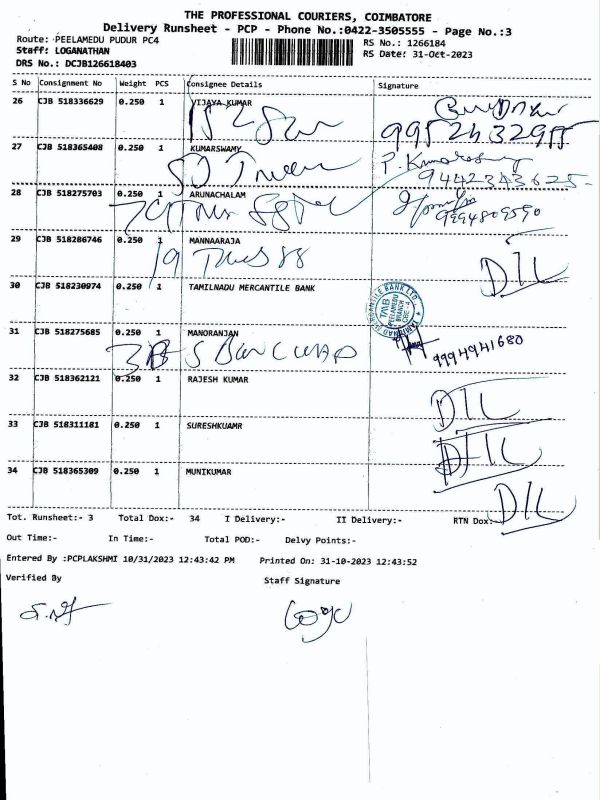 THE PROFESSIONAL COURIERS, COIMBATORE
Delivery Runsheet - PCP - Phone No.:0422-3505555 - Page No.:3
Route: PEELAMEDU PUDUR PC4
RS No.: 1266184
Staff: LOGANATHAN
RS Date: 31-Oct-2023
DRS No.: DCJB126618403
S No Consignment No Weight PCS Consignee Details Signature
26 CJB 518336629 0.250 1 VIJAYA KUMAR
9952432955
27 CJB 518365408 0.250 1 KUMARSWAMY
9442343625
28 CJB 518275703 0.250 1 ARUNACHALAM
9994809590
29 CJB 518286746 0.250 1 MANNAARAJA
DIL
30 CJB 518230974 0.250 1 TAMILNADU MERCANTILE BANK
31 CJB 518275685 0.250 1 MANORANJAN
9994941680
32 CJB 518362121 0.250 1 RAJESH KUMAR
DIL
33 CJB 518311181 0.250 1 SURESHKUAMR
DIL
34 CJB 518365309 0.250 1 MUNIKUMAR
DIL
Tot. Runsheet:- 3 Total Dox:- 34 I Delivery:- II Delivery:- RTN Dox:
Out Time:- In Time:- Total POD:- Delvy Points:-
Entered By :PCPLAKSHMI 10/31/2023 12:43:42 PM Printed On: 31-10-2023 12:43:52
Verified By Staff Signature